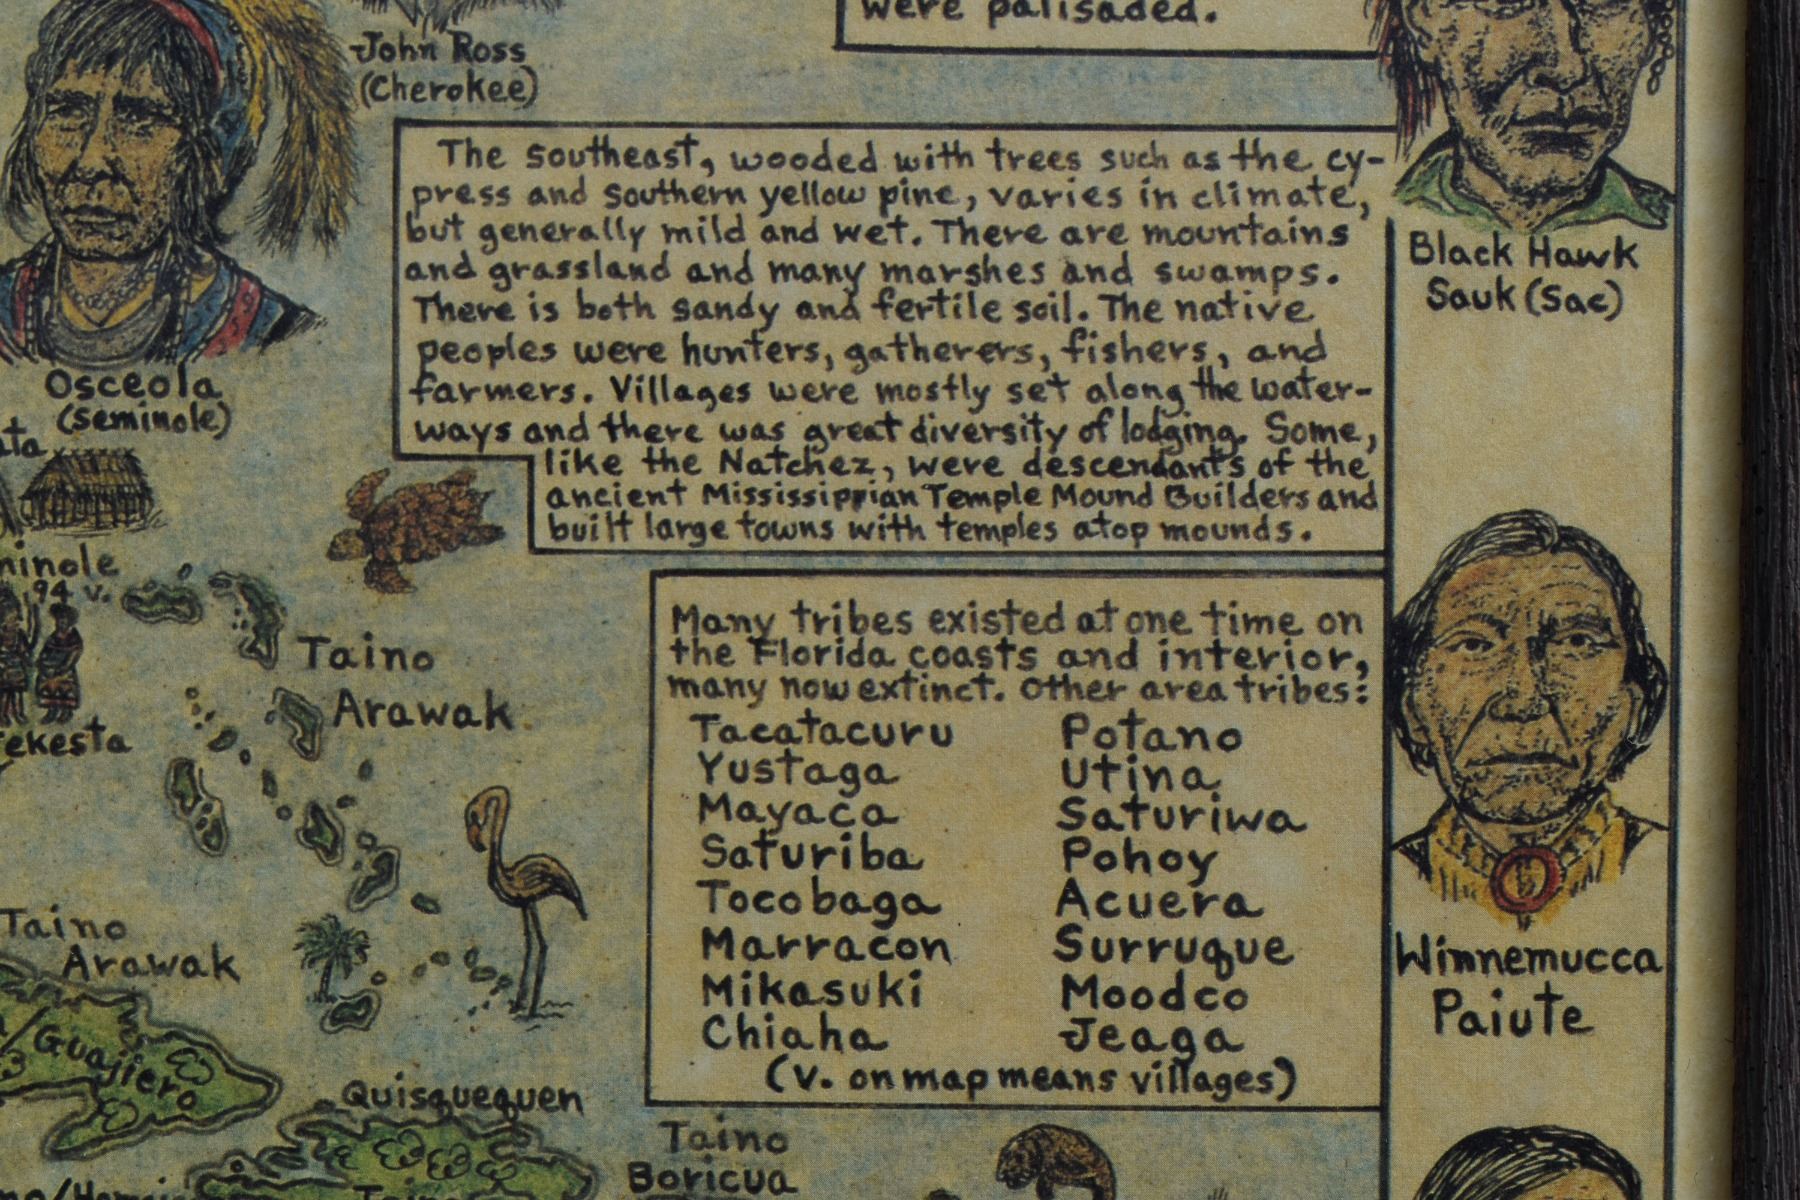 were palisaded.
John Ross
(Cherokee)
The southeast, wooded with trees such as the cy-
press and southern yellow pine, varies in climate,
but generally mild and wet. There are mountains
and grassland and many marshes and swamps.
There is both sandy and fertile soil. The native
peoples were hunters, gatherers, fishers, and
farmers. Villages were mostly set along the water-
ways and there was great diversity of lodging. Some,
like the Natchez, were descendants of the
ancient Mississippian Temple Mound Builders and
built large towns with temples atop mounds.
Black Hawk
Sauk (Sac)
Osceola
(Seminole)
94 v.
Taino
Arawak
Many tribes existed at one time on
the Florida coasts and interior,
many now extinct. Other area tribes:
Tacatacuru Potano
Yustaga Utina
Mayaca Saturiwa
Saturiba Pohoy
Tocobaga Acuera
Marracon Surruque
Mikasuki Moodco
Chiaha Jeaga
(v. on map means villages)
Winnemucca
Paiute
Taino
Arawak
Guajiero
Quisquequen
Taino
Boricua
Taino